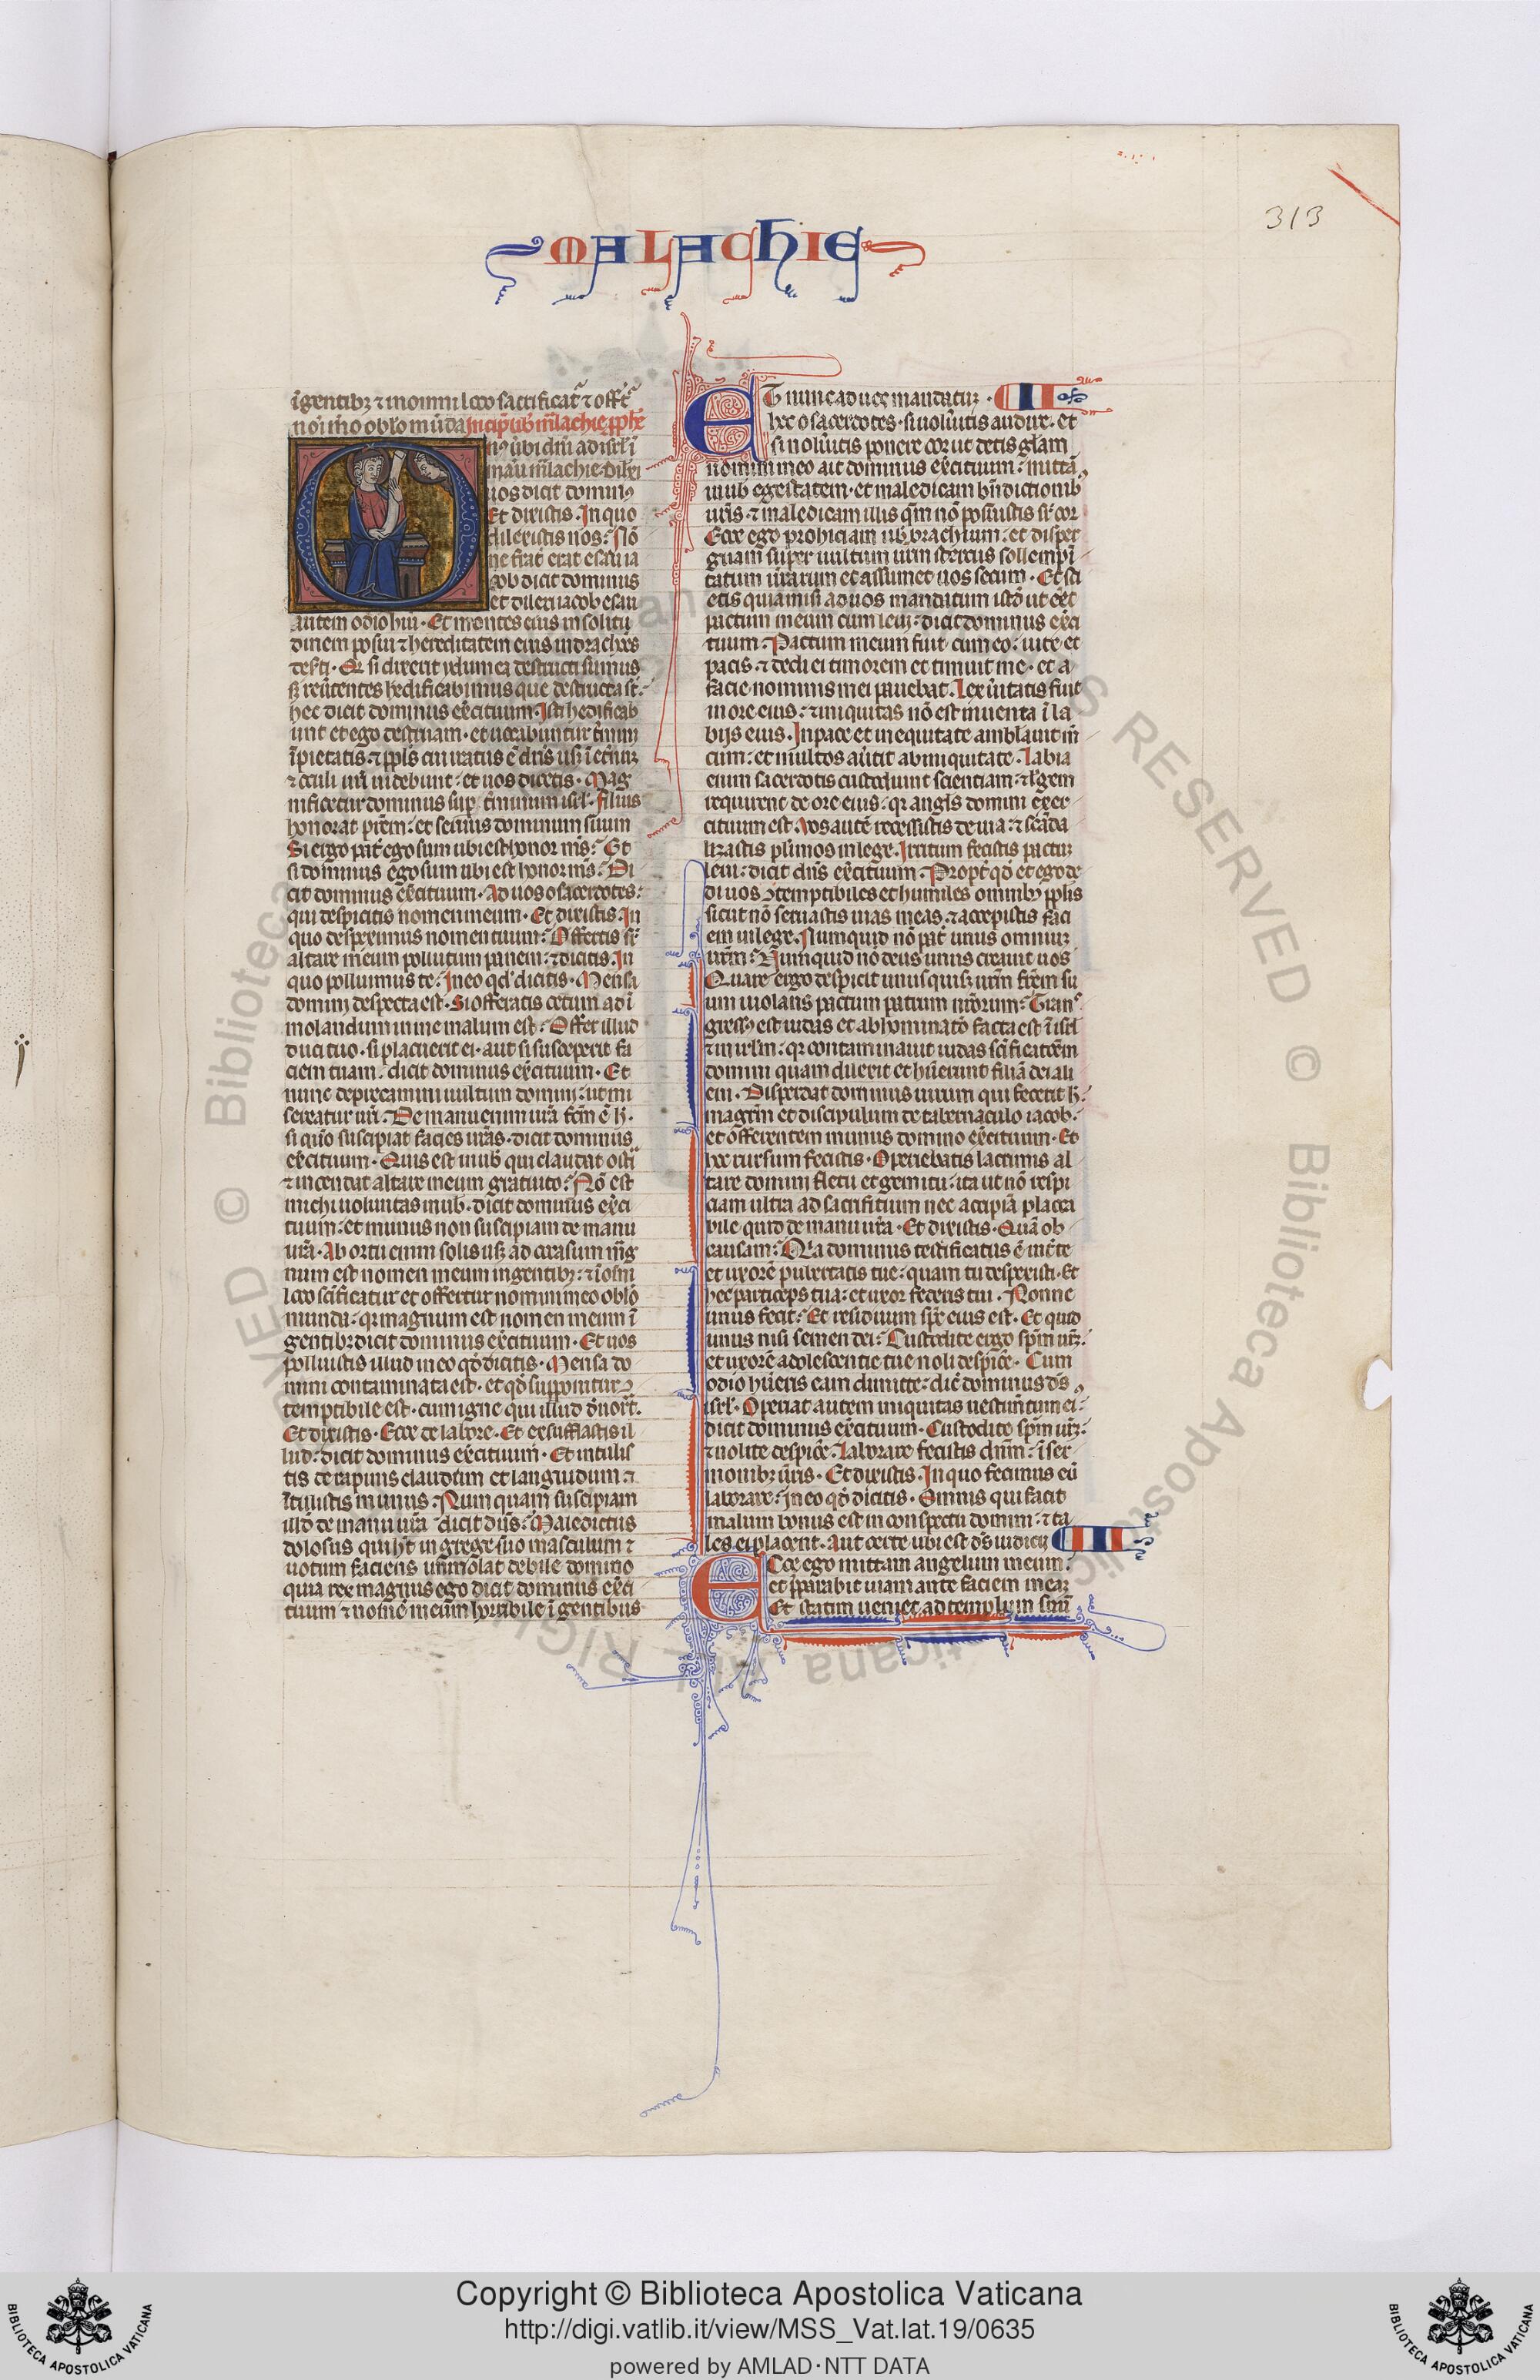 313
MALACHIE
ī gentibꝫ ⁊ in om̄i loco sacrificat̄ ⁊ offert̄
noı̄ m̄o oblo mūda Incip̄ lib̄ m̄lachie ꝓph̄e
nꝰ ūbi dn̄i ad isrl̄ ī
manu m̄lachie · dilexi
uos dicit dominꝰ
Et dixistis · In quo
dilexistis nos : Nō
ne frat̄ erat esau ia
cob dicit dominus
et dilexi iacob esau
autem odio hui · Et montes eius in solitu
dinem posui ⁊ hereditatem eius in dracones
deserti · Qr si dixerit ydumea destructi sumus
sꝫ reūtentes hedificabimus que destructa st̄ :
hec dicit dominus exercituum · Isti hedificab
unt et ego destruam · et uocabuntur t̄mini
īpietatis · ⁊ ppl̄s cui iratus ē dn̄s usqꝫ ī et̄nuꝫ
⁊ oculi ur̄i uidebunt · et uos dicetis · Mag
nificetur dominus sup̄ t̄minum isrl̄ · filius
honorat pr̄em : et seruus dominum suum
Si ergo pat̄ ego sum ubi est honor m̄s : Et
si dominus ego sum ubi est honor m̄s : Di
cit dominus exercituum · Ad uos o sacerdotes :
qui despicitis nomen meum · Et dixistis · In
quo despeximus nomen tuum : Offertis sr̄
altare meum pollutum panem : ⁊ dicitis · In
quo polluimus te : In eo qd̄ dicitis · Mensa
domini despecta est · Si offeratis cecum ad ī
molandum nonne malum est : Offer illud
duci tuo · si placuerit ei · aut si susceperit fa
ciem tuam : dicit dominus exercituum · Et
nunc deprecamini uultum domini : ut mi
sereatur ur̄i : De manu enim ur̄a fc̄m ē h̄ ·
si quo suscipiat facies ur̄as · dicit dominus
exercituum · Quis est in uob̄ qui claudat osti
⁊ incendat altare meum gratuito : Nō est
michi uoluntas in uob̄ · dicit dominus exerci
tuum : et munus non suscipiam de manu
ur̄a · Ab ortu enim solis usqꝫ ad occasum mag
num est nomen meum in gentibꝫ : ⁊ ī om̄i
loco sacrificatur et offertur nomini meo oblō
munda : qr magnum est nomen meum ī
gentibꝫ dicit dominus exercituum · Et uos
polluistis illud in eo qd̄ dicitis · Mensa do
mini contaminata est · et qd̄ supponitur ꝯ
temptibile est · cum igne qui illud deuorat̄ ·
Et dixistis · Ecce de labore · Et exsufflastis il
lud : dicit dominus exercituum · Et intulis
tis de rapinis claudum et languidum : ⁊
ītulistis munus : Nunquam suscipiam
illd̄ de manu ur̄a dicit dn̄s : Maledictus
dolosus qui h̄t in grege suo masculum ⁊
uotum faciens immolat debile domino
quia rex magnus ego dicit dominus exerci
tuum ⁊ nomē meum horribile ī gentibus
ET nunc ad uos mandatuꝫ · II
hoc o sacerdotes · si noluitis audire · et
si noluitis ponere cor ut detis gl̄am
nomini meo ait dominus exercituum : mittā
in uob̄ egestatem · et maledicam bn̄dictionibꝰ
ur̄is · ⁊ maledicam illis qm̄ nō posuistis sr̄ cor
Ecce ego prohiciam uob̄ brachium : et disper
guam super uultum ur̄m stercus sollempni
tatum ur̄arum et assumet uos secum · Et sci
etis quia misi ad uos mandatum istd̄ ut eēt
pactum meum cum leui : dicit dominus exerci
tuum : Pactum meum fuit cum eo : uite et
pacis · ⁊ dedi ei timorem et timuit me · et a
facie nominis mei pauebat · Lex ueritatis fuit
in ore eius : ⁊ iniquitas nō est inuenta ī la
bijs eius · In pace et in equitate ambulauit m̄
cum : et multos aūtit ab iniquitate · Labia
enim sacerdotis custodiunt scientiam : ⁊ legem
requirent de ore eius : qr angl̄s domini exer
cituum est · Vos autē recessistis de uia : ⁊ scāda
lizastis plimos in lege · Irritum fecistis pactuꝫ
leui : dicit dn̄s exercituum · Propt̄ qd̄ et ego de
di uos ꝯtemptibiles et humiles omnibꝫ ppl̄is
sicut nō seruastis uias meas · ⁊ accepistis faci
em in lege · Numquid nō pat̄ unus omniuꝫ
ur̄m : Numquid nō deus unus creauit uos
Quare ergo despicit unusquisqꝫ ur̄m fr̄em su
um uiolans pactum patrum nr̄orum : Trans
gressꝰ est iudas et abhominatō facta est ī isrl̄
⁊ in irl̄m : qr contaminauit iudas sc̄ificatōem
domini quam dilexit et habuit filiā dei ali
eni · Disperdat dominus uirum qui fecerit h̄ :
magr̄m et discipulum de tabernaculo iacob ·
et offerentem munus domino exercituum · Et
hoc rursum fecistis · Operiebatis lacrimis al
tare domini fletu et gemitu : ita ut nō respi
ciam ultra ad sacrificium nec accipiā placa
bile quid de manu ur̄a · Et dixistis · Quā ob
causam : Qia dominus testificatus ē int̄ te
et uxorē pubertatis tue : quam tu despexisti · Et
hec particeps tua : et uxor federis tui · Nonne
unus fecit : Et residuum sp̄c eius est · Et quid
unus nisi semen dei : Custodite ergo sp̄m ur̄ꝫ :
et uxorē adolescentie tue noli despicē · Cum
odio hūeris eam dimitte : dic̄ dominus d̄s
isrl̄ · Operiat autem iniquitas uestim̄tum ei :
dicit dominus exercituum · Custodite sp̄m ur̄ꝫ :
⁊ nolite despicē · Laborare fecistis dn̄m : ī ser
monibꝫ ūris · Et dixistis · In quo fecimus eū
laborare : In eo qd̄ dicitis · Omnis qui facit
malum bonus est in conspectu domini : ⁊ ta
les ei placent · Aut certe ubi est d̄s iudicij III
Ecce ego mittam angelum meum :
et p̄parabit uiam ante faciem meaꝫ
Et statim ueniet ad templum suū
© Biblioteca Apostolica Vaticana ALL RIGHTS RESERVED
Copyright © Biblioteca Apostolica Vaticana
http://digi.vatlib.it/view/MSS_Vat.lat.19/0635
powered by AMLAD·NTT DATA
BIBLIOTECA APOSTOLICA VATICANA
BIBLIOTECA APOSTOLICA VATICANA